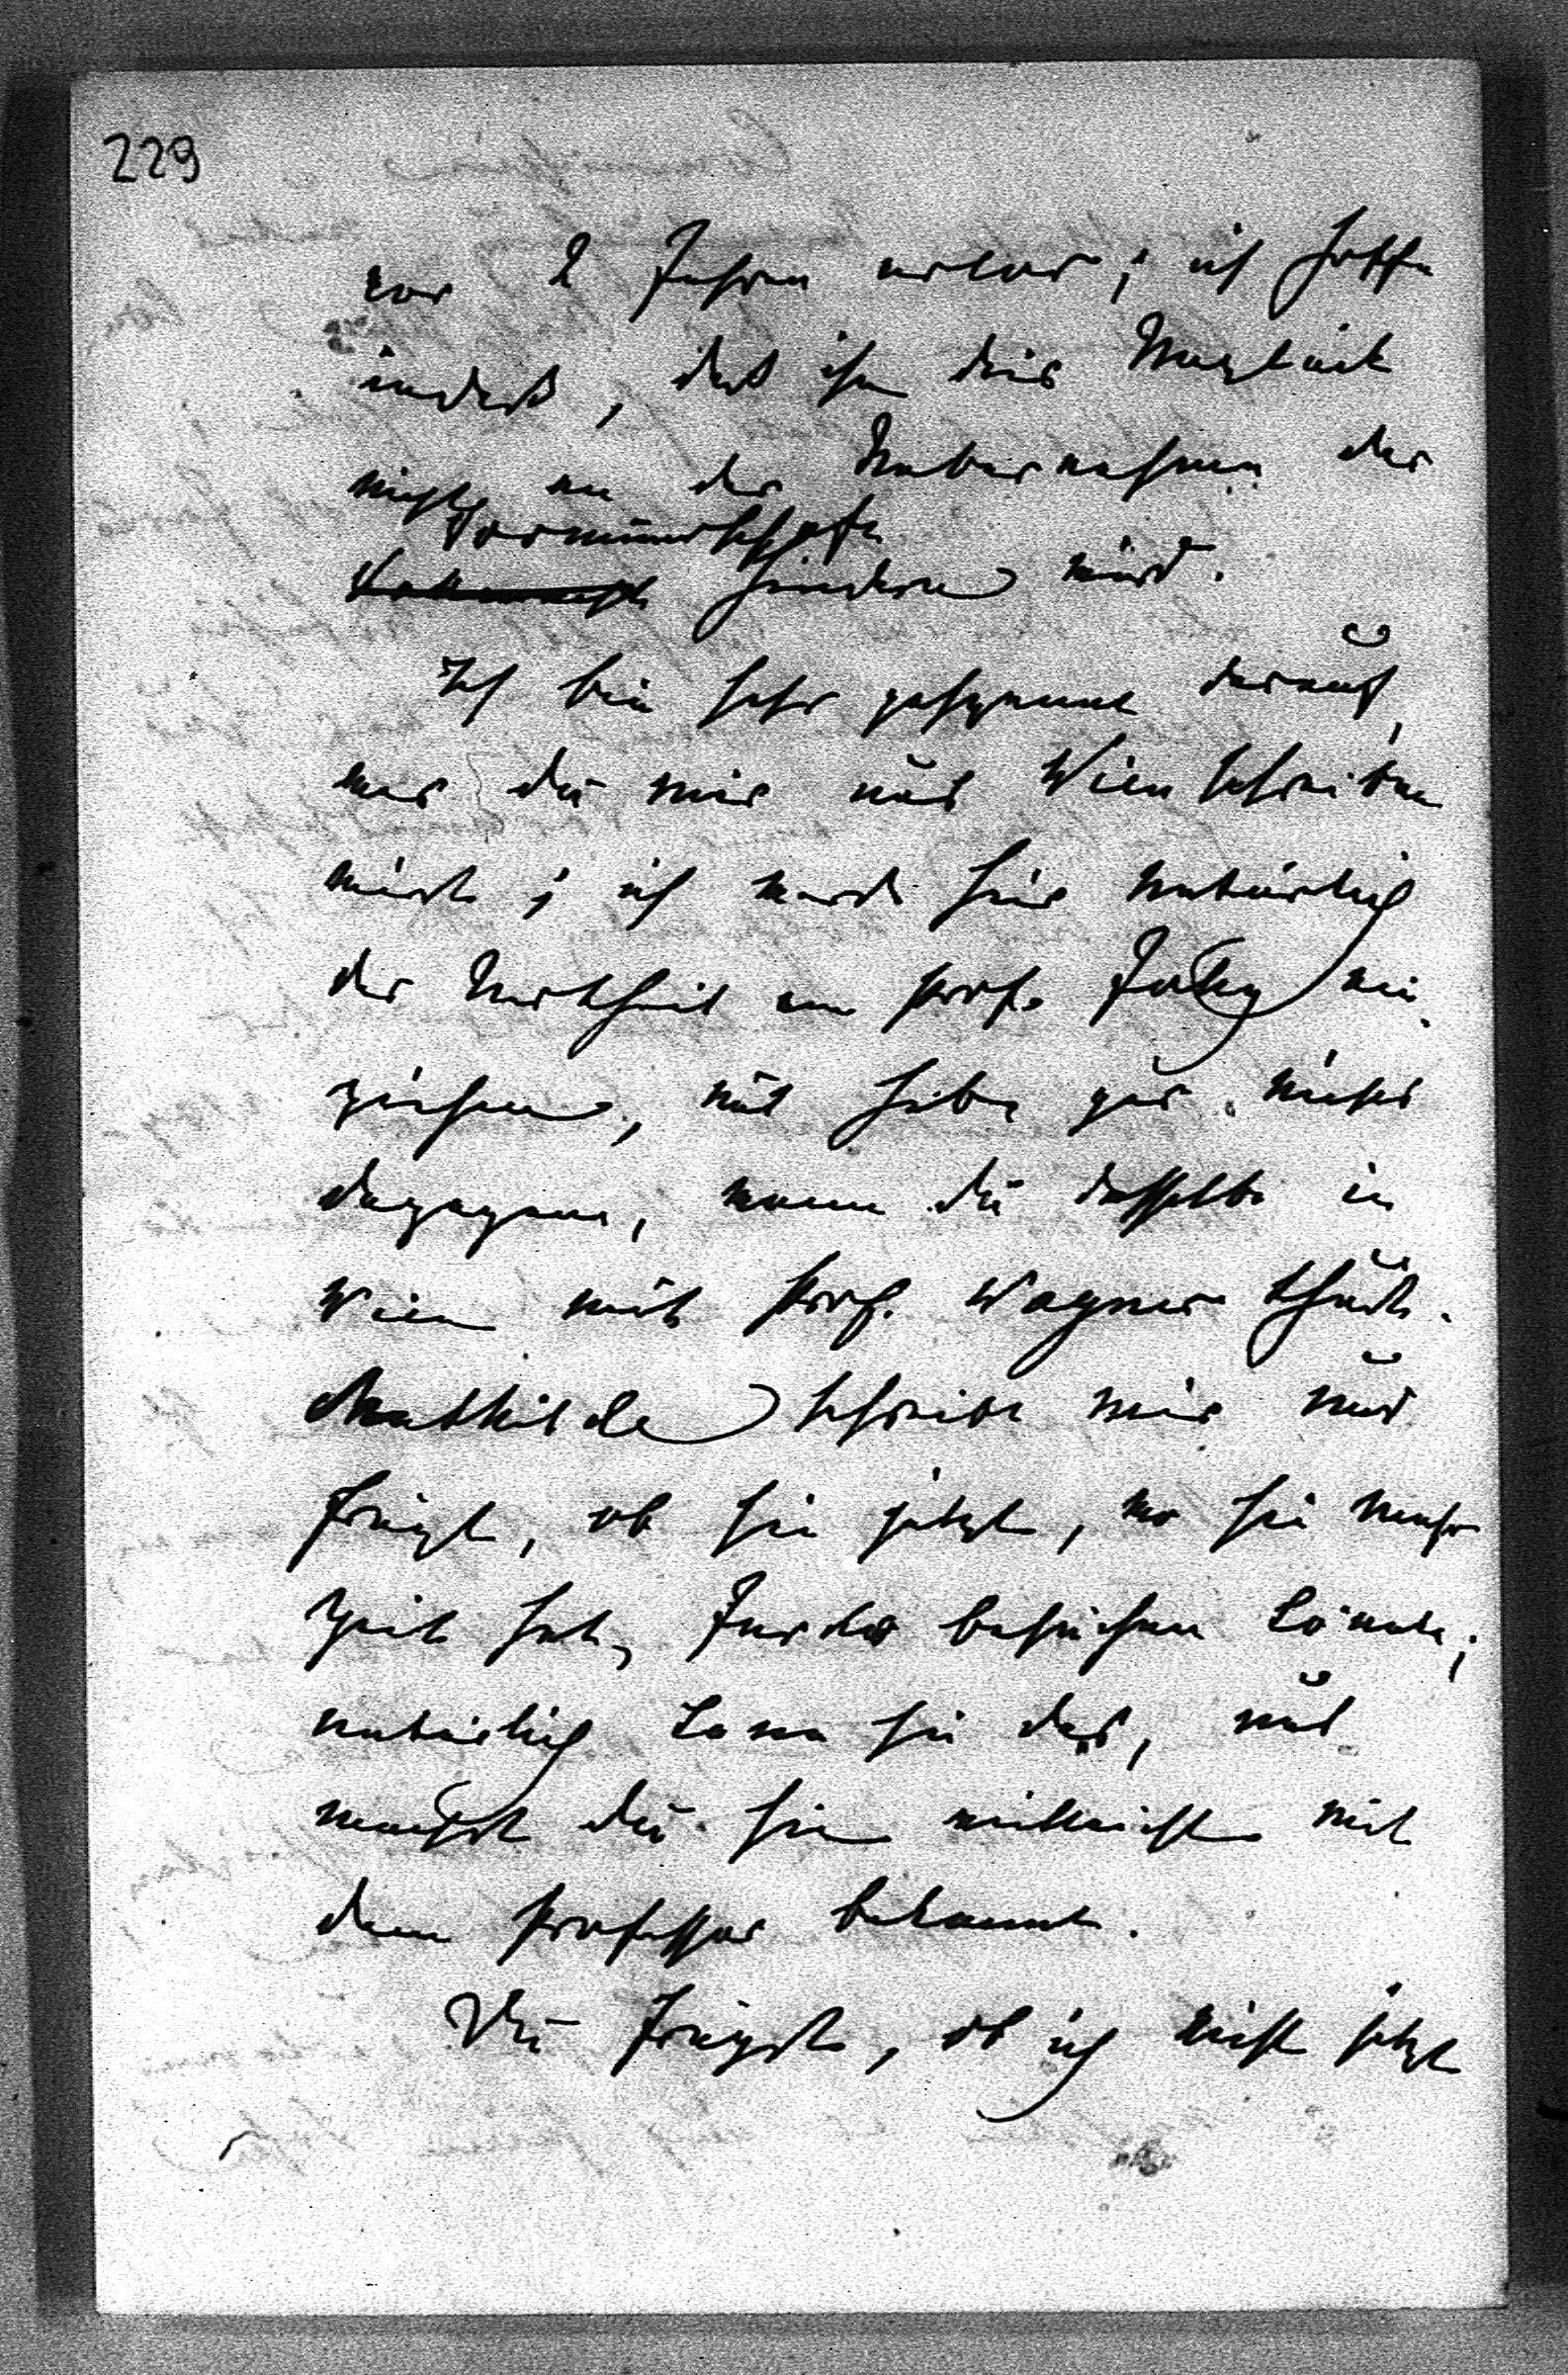 229
vor 2 Jahren verlor; ich hoffe
indeß, daß ihn dies Unglück
nicht an der Uebernahme der
Vormundschaft
hindern wird.
Ich bin sehr gespannt darauf,
was du mir aus Wien schreiben
wirst; ich werde hier natürlich
der Wahrheit um Prof.
ziehen, und habe gar nichts
dagegen, wenn du dasselbe in
Wien mit Prof. Wagner thust.
Mathilde schreibt mir und
frägt, ob sie jetzt, wo sie mehr
Zeit hat, besuchen könnte;
natürlich kann sie das, und
machst du sie vielleicht mit
dem Professor bekannt.
Du frägst, ob ich nicht jetzt